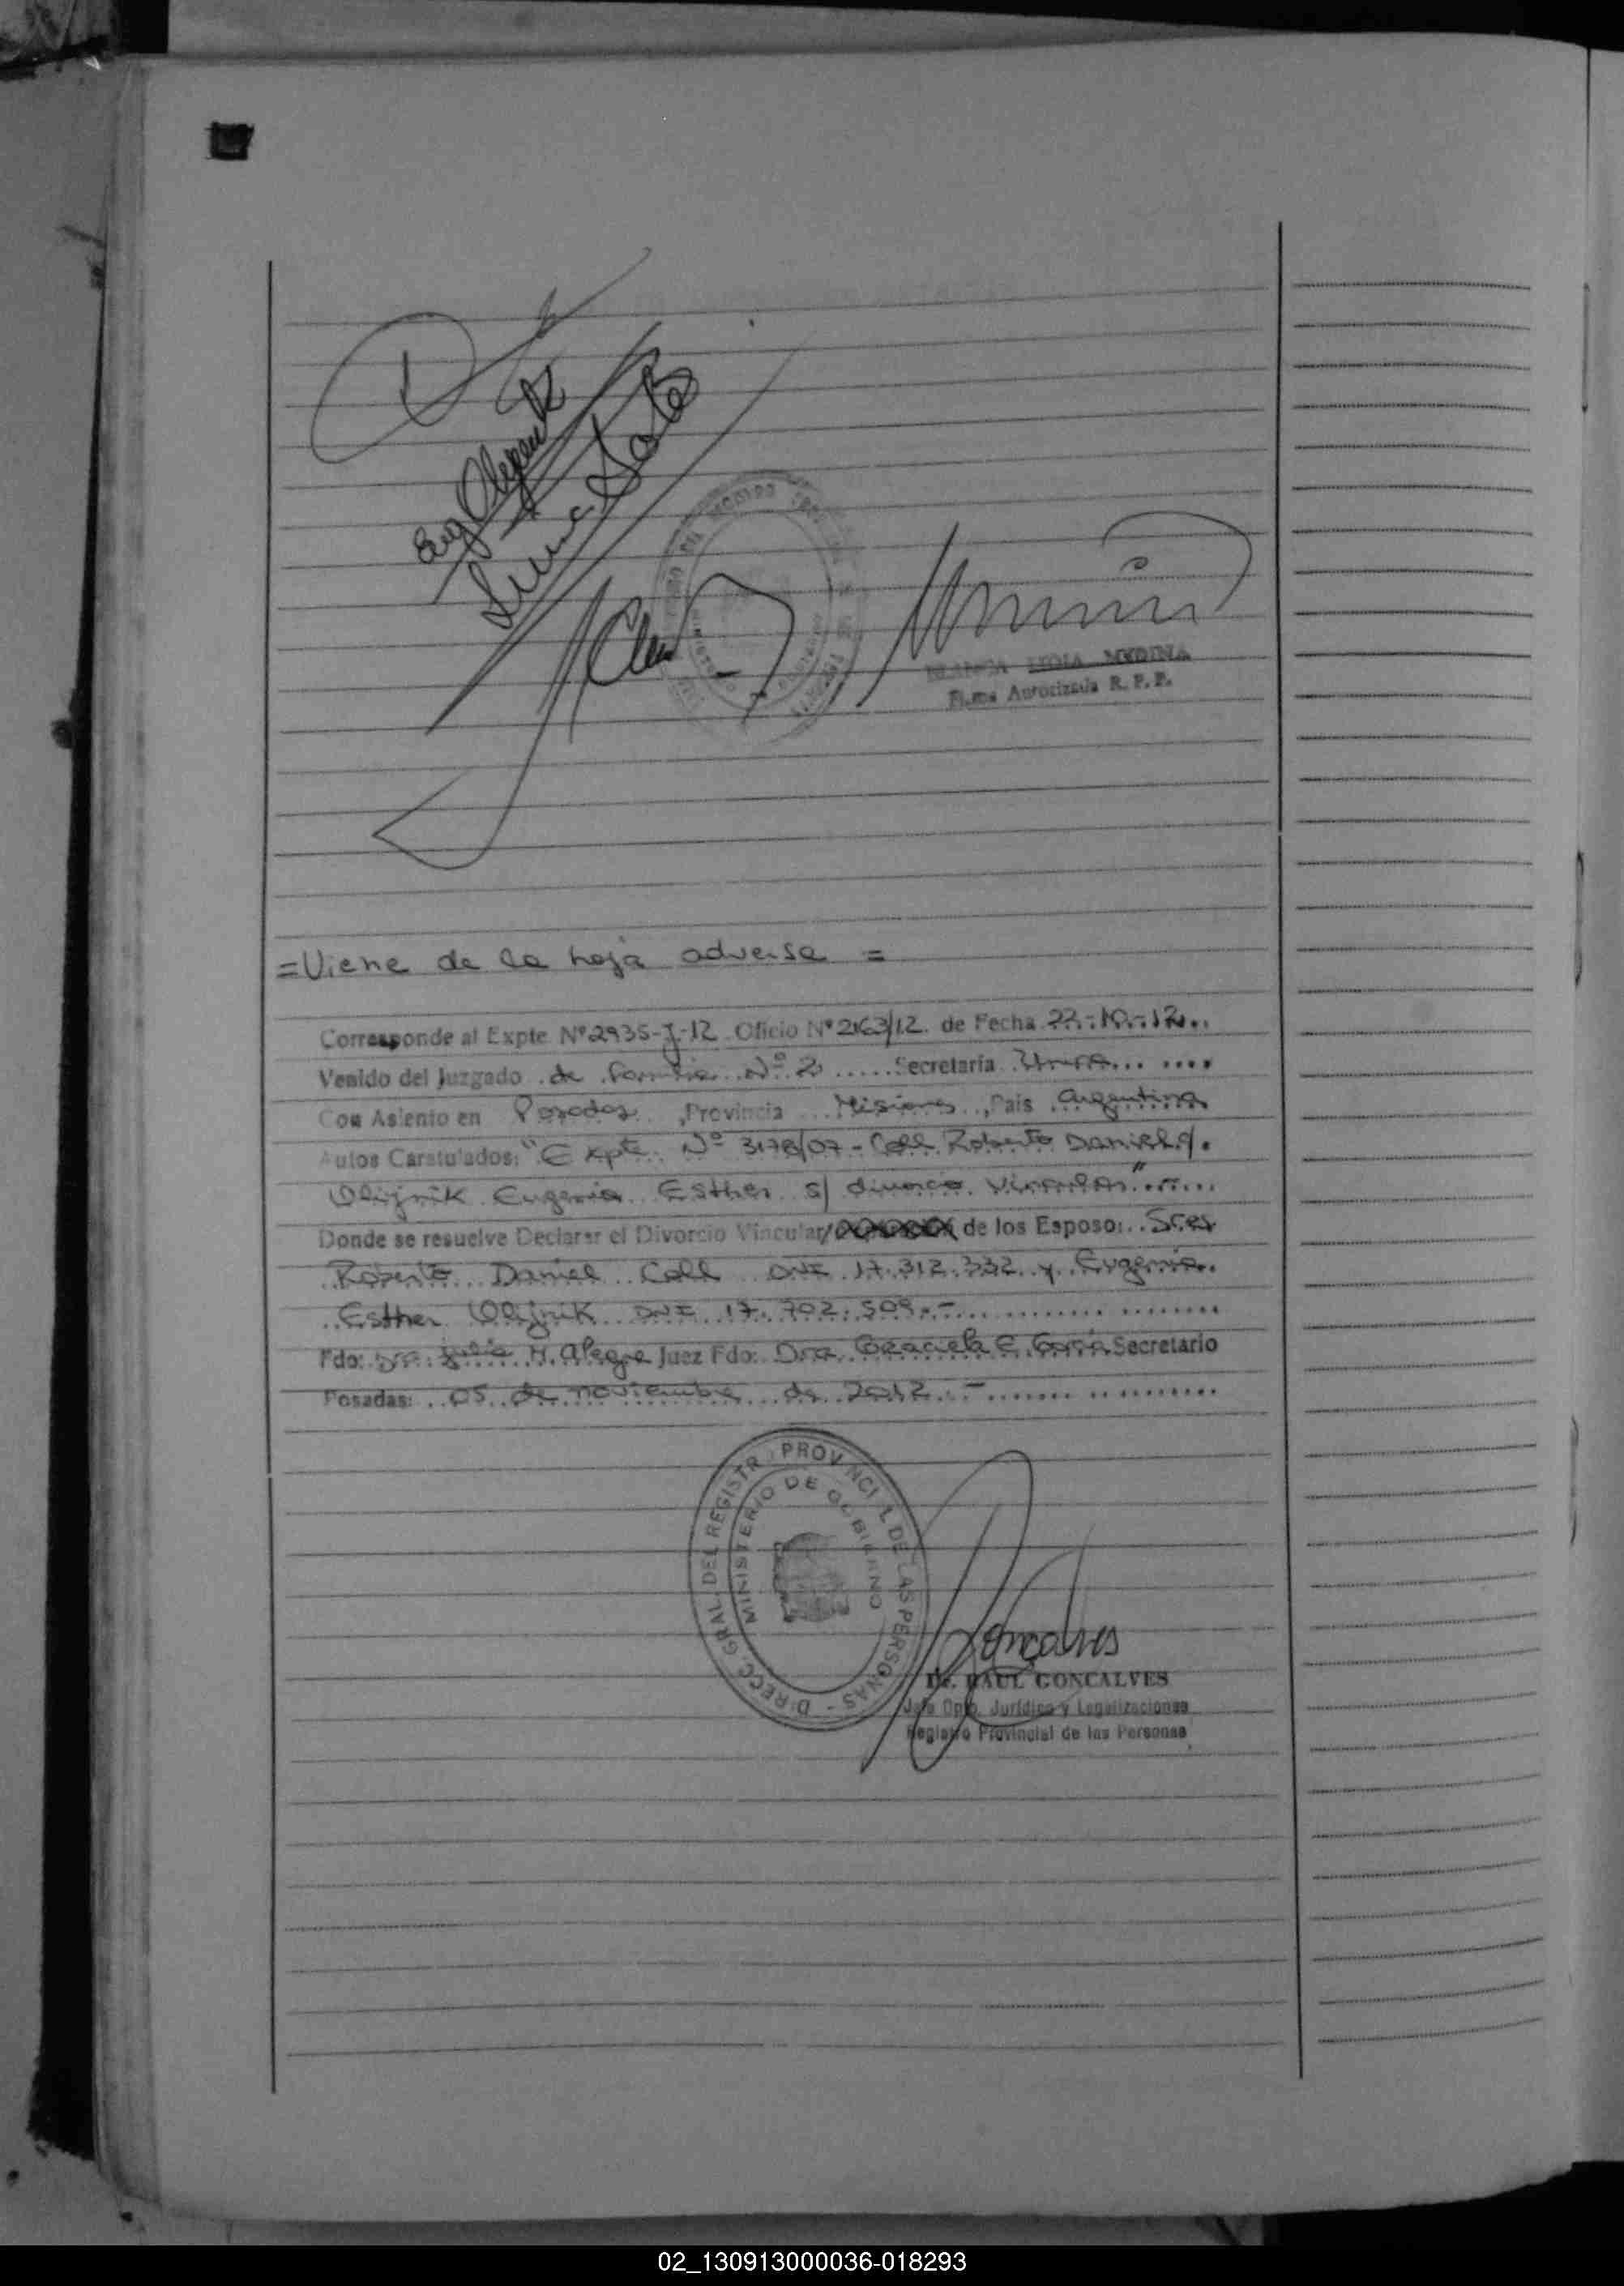 BLANCA LIDIA MEDINA
Firma Autorizada R. P. P.
= Viene de la hoja adversa =
Corresponde al Expte Nº 2935-J-12 Oficio Nº 2163/12. de Fecha 22-10-12
Venido del Juzgado de familia Nº 2 Secretaría Unica
Con Asiento en Posadas, Provincia Misiones, País Argentina
Autos Caratulados: "Expte. Nº 3178/07 - Coll Roberto Daniel c/.
Olijnik Eugenia Esther s/ divorcio Vincular"
Donde se resuelve Declarar el Divorcio Vincular/ de los Esposo: Sres
Roberto Daniel Coll DNI 17.312.332 y Eugenia
Esther Olijnik DNI 17.702.509.-
Fdo: Dra. Julia H. Alegre Juez Fdo: Dra. Graciela E. Secretario
Posadas: 05 de noviembre de 2012.-
DIRECC. GRAL. DEL REGISTRO PROVINCIAL DE LAS PERSONAS -
MINISTERIO DE GOBIERNO
Goncalves
Dr. RAUL GONCALVES
Jefe Dpto. Jurídico y Legalizaciones
Registro Provincial de las Personas
02_130913000036-018293